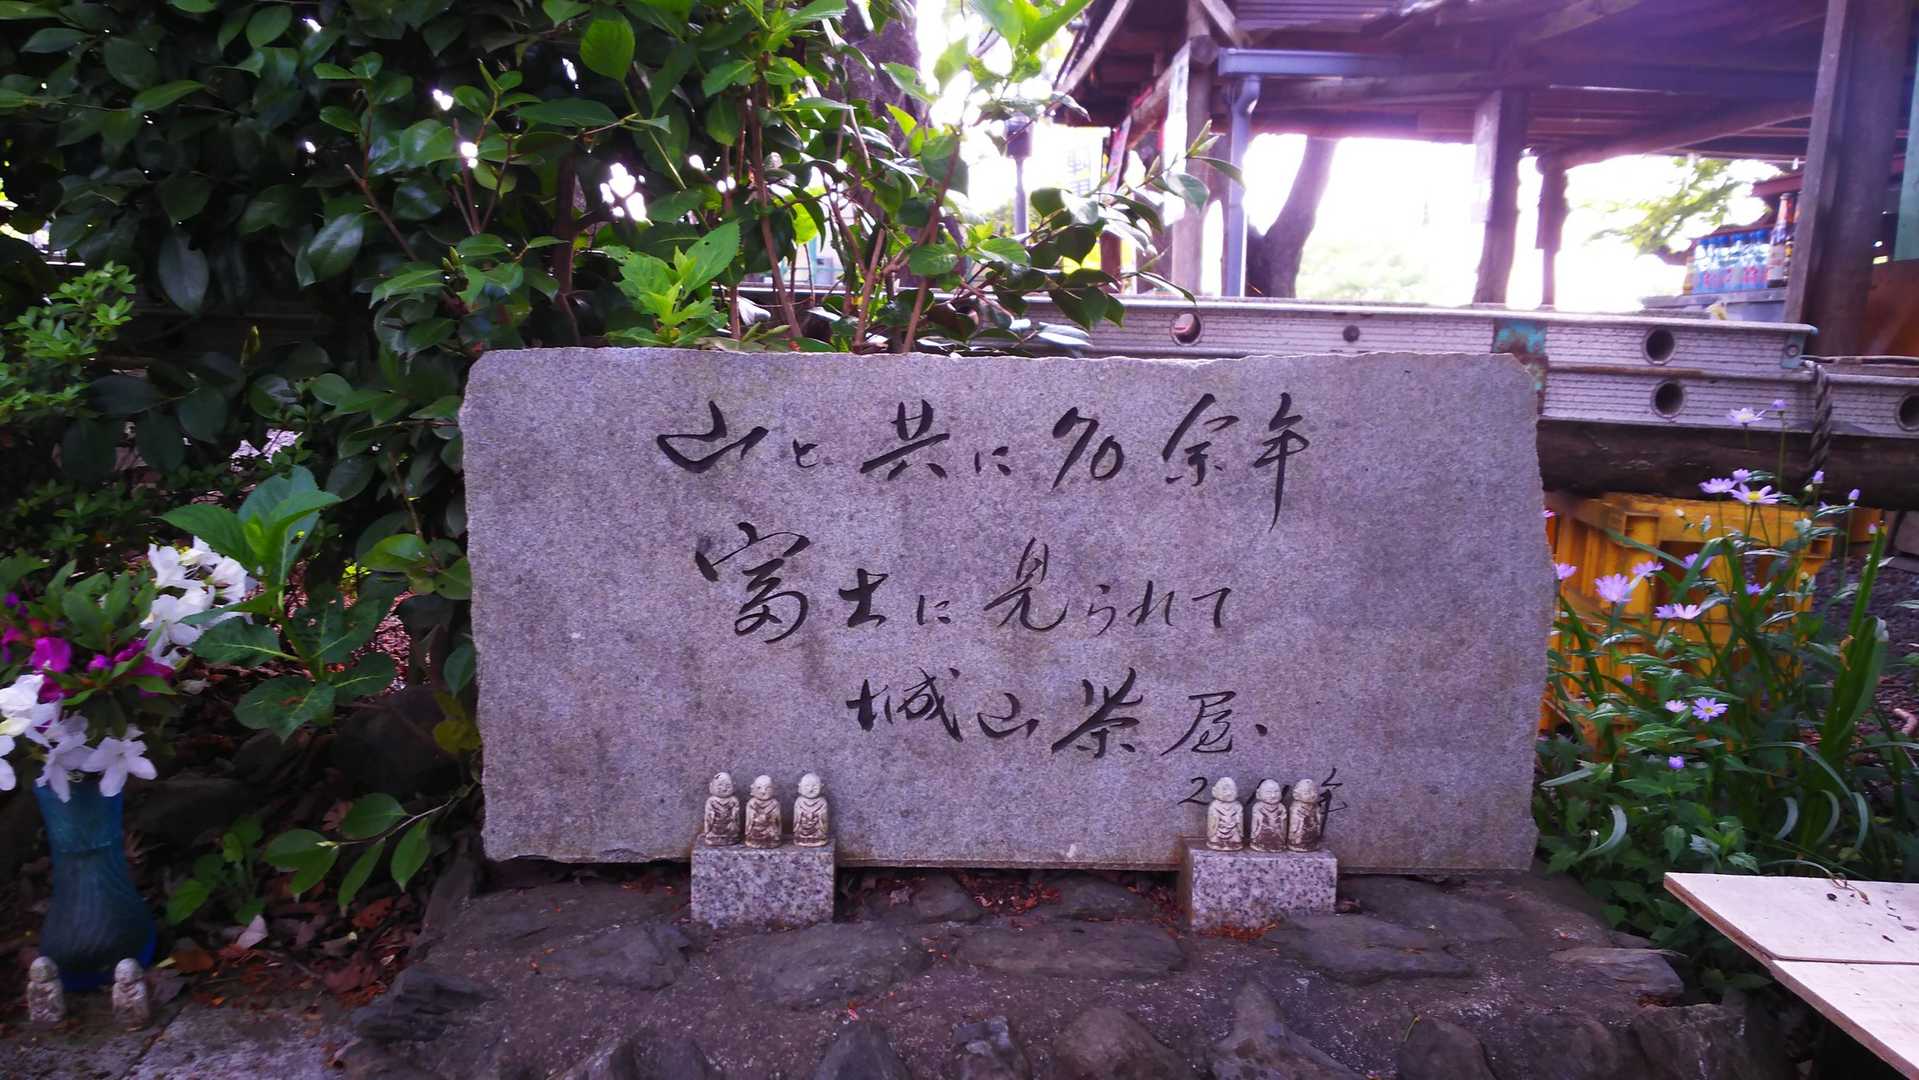 山と共に70余年
富士に見られて
城山茶屋.